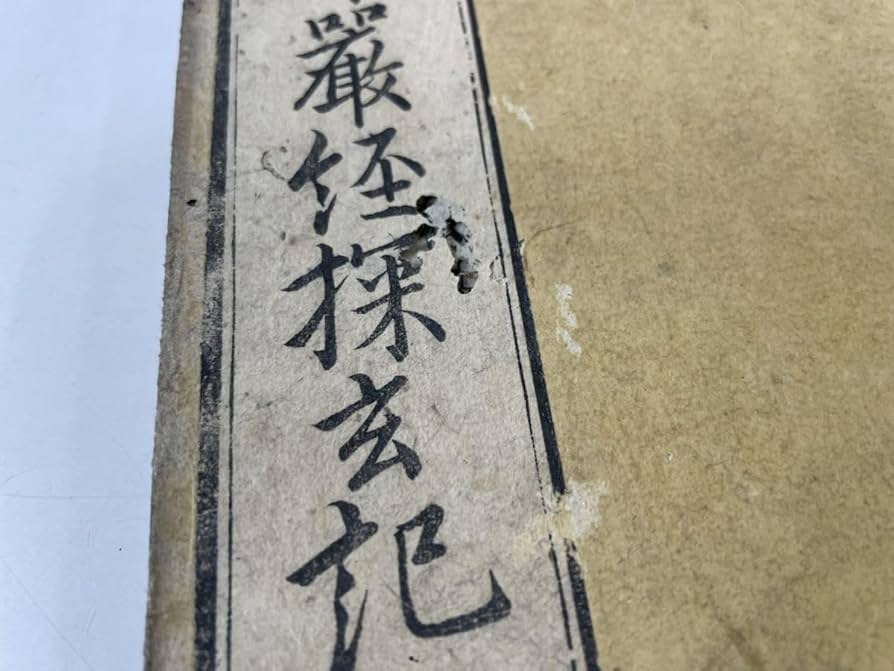 嚴經探玄記